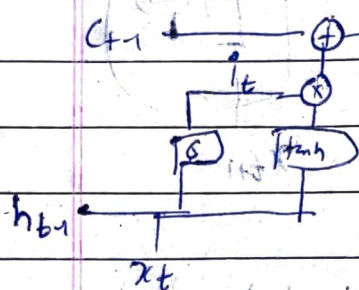 C t-1 +
i t ×
σ tanh
h t-1
x t